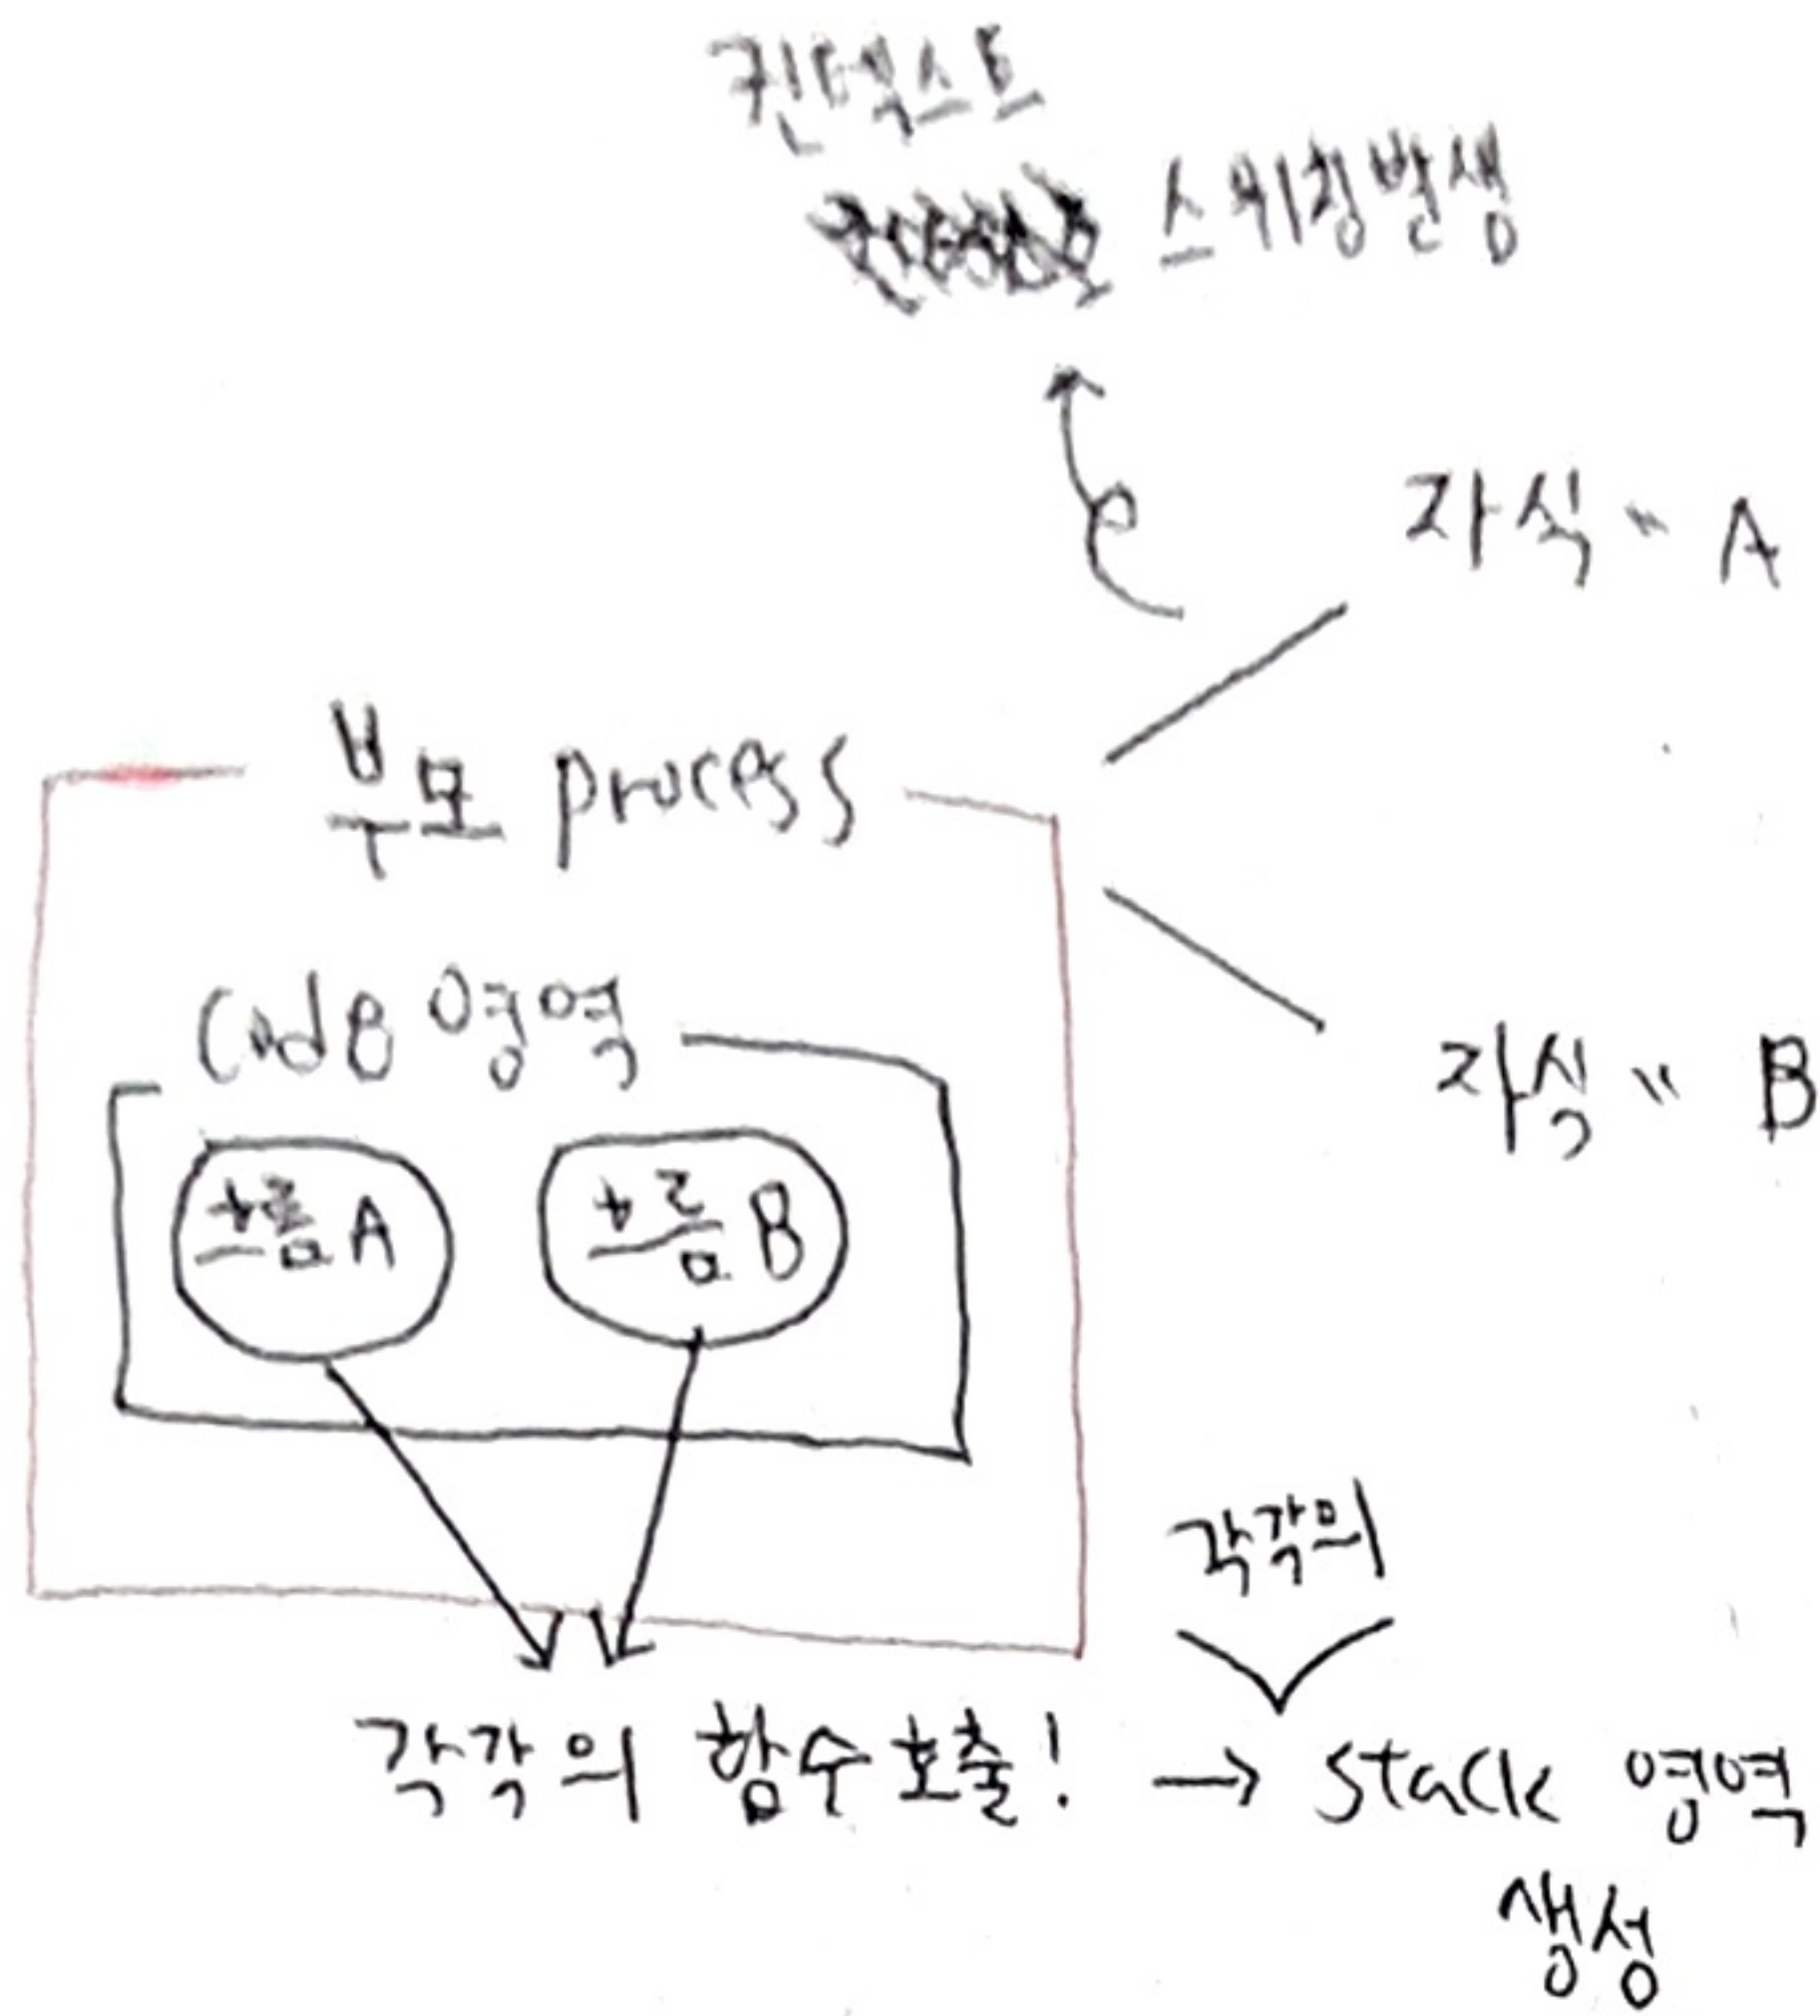 컨텍스트
스위칭발생
자식 〃 A
부모 process
Code 영역
자식 〃 B
흐름A
흐름B
각각의
각각의 함수호출! → Stack 영역
생성